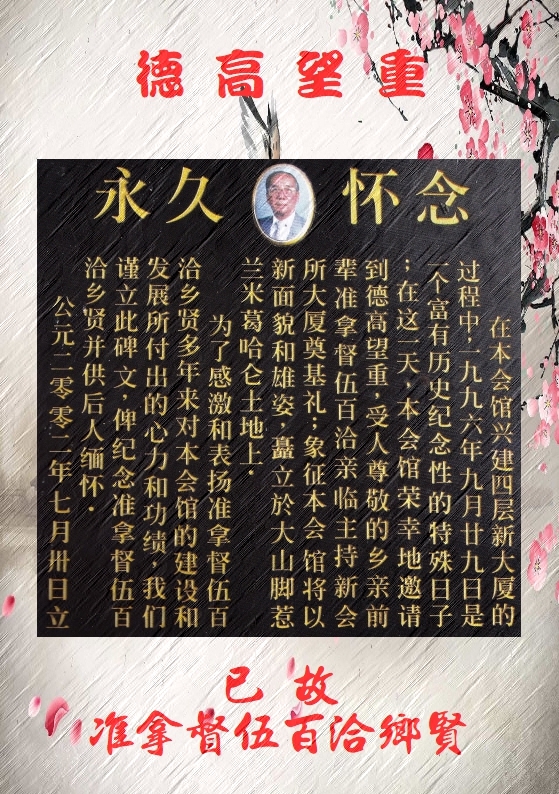 德高望重
永久怀念
在本会馆兴建四层新大厦的
过程中,一九九六年九月廿九日是
一个富有历史纪念性的特殊日子
;在这一天,本会馆荣幸地邀请
到德高望重,受人尊敬的乡亲前
辈准拿督伍百洽亲临主持新会
所大厦奠基礼;象征本会馆将以
新面貌和雄姿,矗立於大山脚惹
兰米葛哈仑土地上.
为了感激和表扬准拿督伍百
洽乡贤多年来对本会馆的建设和
发展所付出的心力和功绩,我们
谨立此碑文,俾纪念准拿督伍百
洽乡贤并供后人缅怀.
公元二零零二年七月卅日立
已故
准拿督伍百洽鄉賢